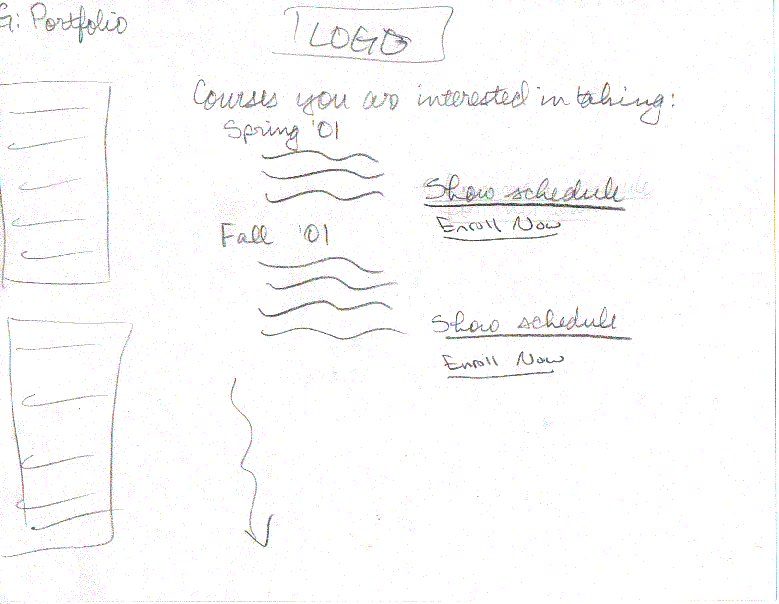 G: Portfolio
LOGO
Courses you are interested in taking:
Spring '01
Show schedule
Enroll Now
Fall '01
Show schedule
Enroll Now